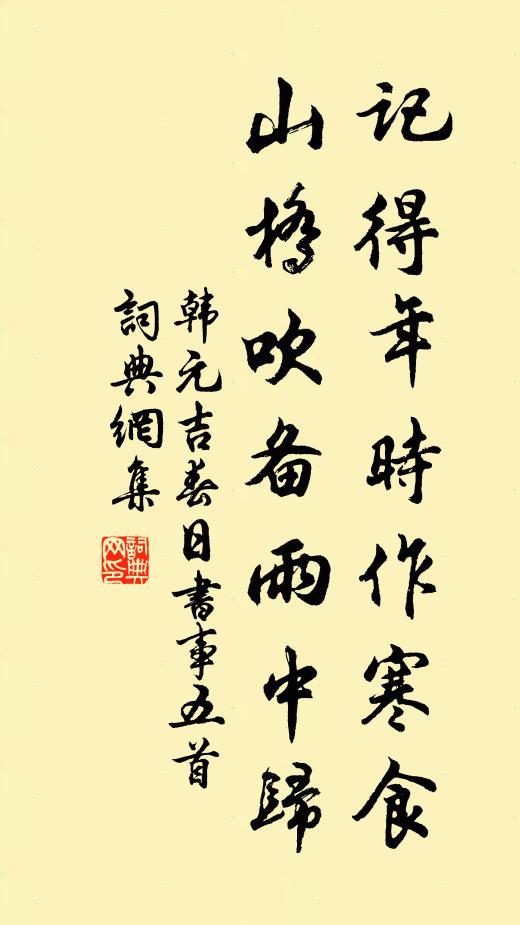 記得年時作寒食
山橋吹备雨中歸
韩元吉春日書事五首
詞典網集
詞典
网印